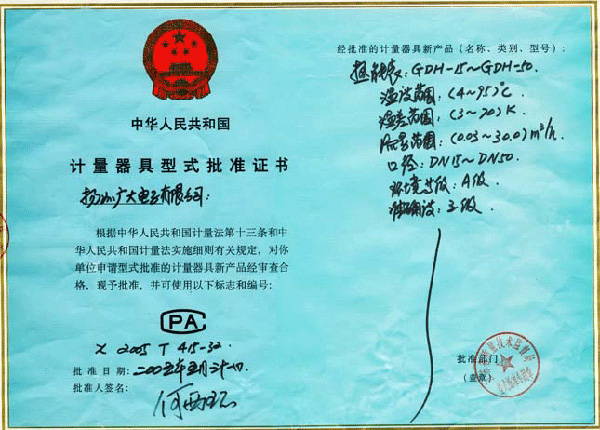 中华人民共和国
计量器具型式批准证书
扬州广大电子有限公司:
根据中华人民共和国计量法第十三条和中
华人民共和国计量法实施细则有关规定,对你
单位申请型式批准的计量器具新产品经审查合
格,现予批准,并可使用以下标志和编号:
CPA
2005 T 415-32
批准日期:二〇〇五年五月三十一日
批准人签名:
经批准的计量器具新产品(名称、类别、型号):
热能表:GDH-15~GDH-50.
温度范围:(4~95)℃
温差范围:(3~70)K
流量范围:(0.03~30.0)m³/h
口径:DN15~DN50.
环境等级:A级
准确度:三级.
批准部门
(盖章)